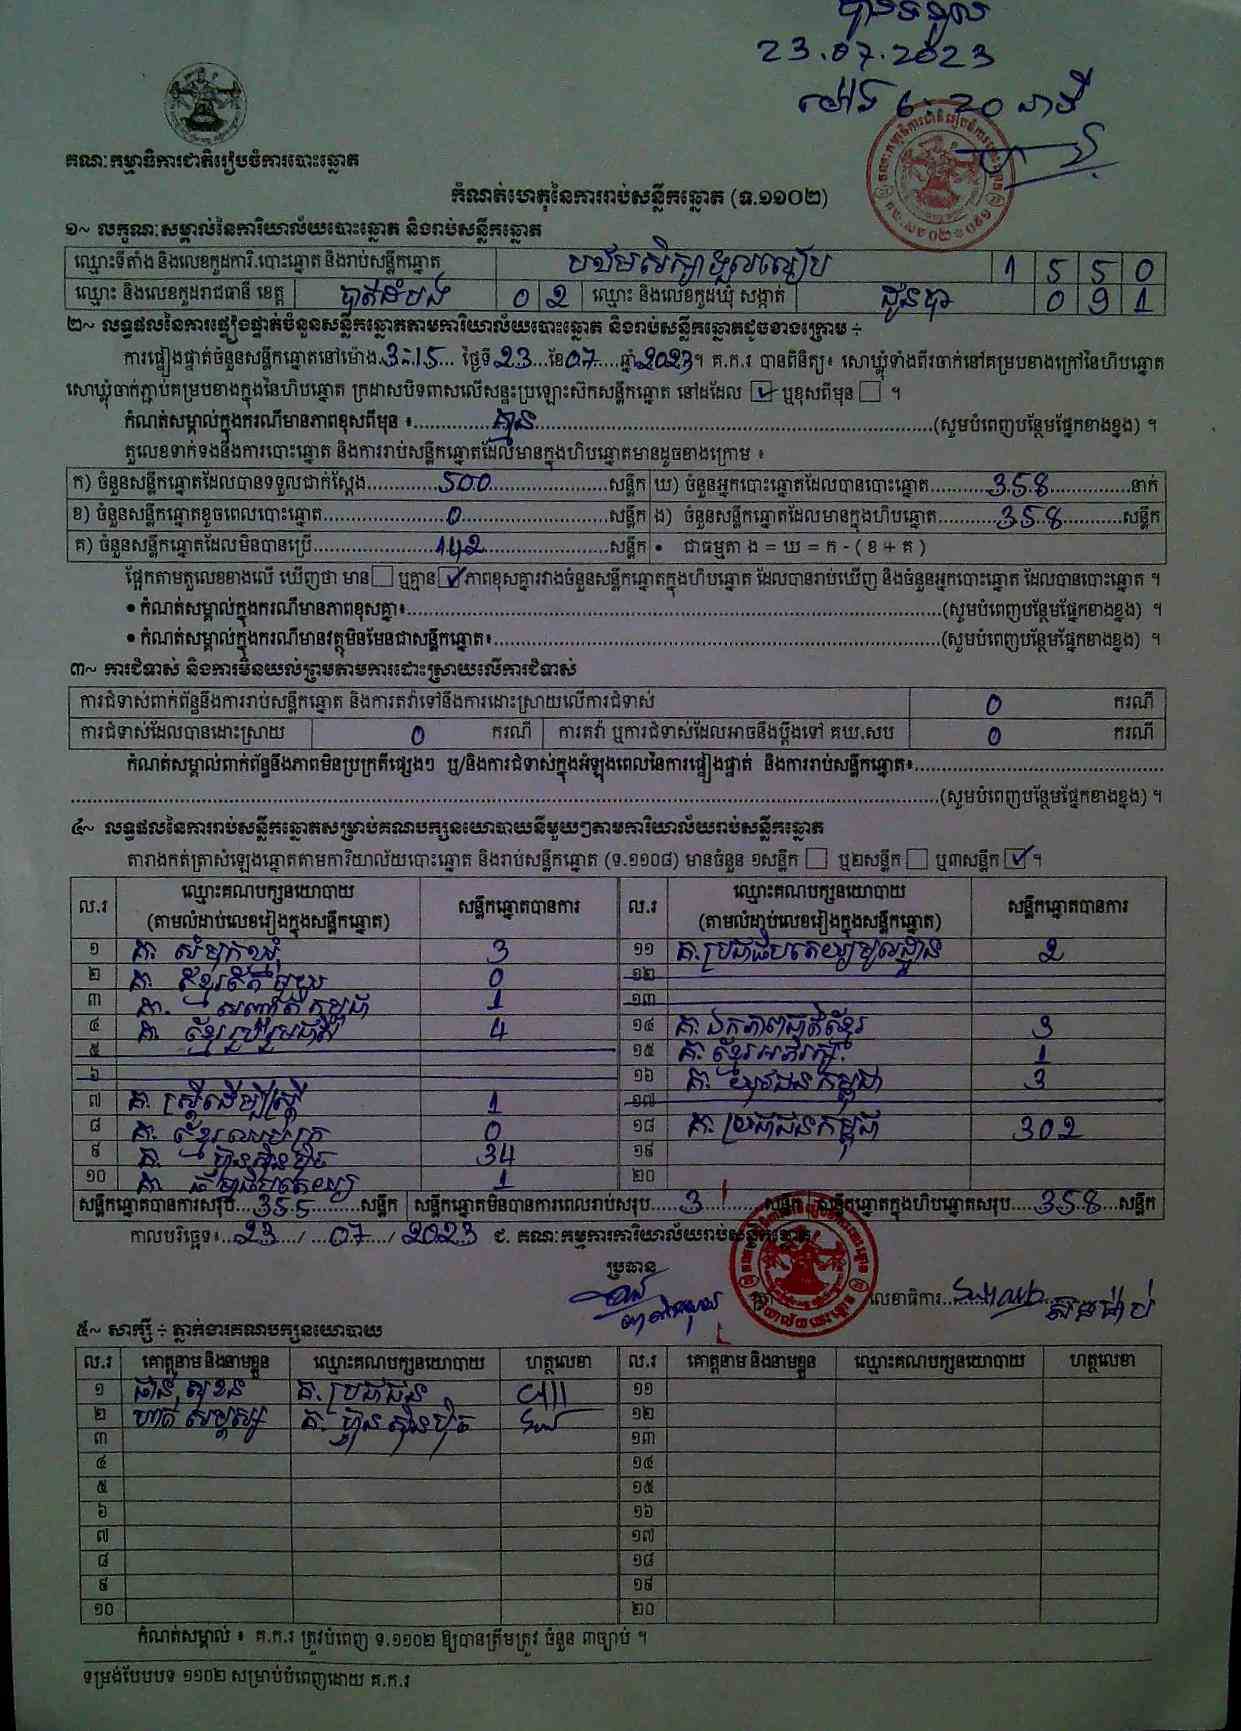 បានទទួល
23.07.2023
ម៉ោង 6:20 នាទី
គណៈកម្មាធិការជាតិរៀបចំការបោះឆ្នោត
កំណត់ហេតុនៃការរាប់សន្លឹកឆ្នោត (ទ.១១០២)
១~ លក្ខណៈសម្គាល់នៃការិយាល័យបោះឆ្នោត និងរាប់សន្លឹកឆ្នោត
ឈ្មោះទីតាំង និងលេខកូដការិ.បោះឆ្នោត និងរាប់សន្លឹកឆ្នោត បឋមសិក្សាទួលល្វៀប 1 5 5 0
ឈ្មោះ និងលេខកូដរាជធានី ខេត្ត បាត់ដំបង 0 2 ឈ្មោះ និងលេខកូដឃុំ សង្កាត់ ដូនបា 0 9 1
២~ លទ្ធផលនៃការផ្ទៀងផ្ទាត់ចំនួនសន្លឹកឆ្នោតតាមការិយាល័យបោះឆ្នោត និងរាប់សន្លឹកឆ្នោតដូចខាងក្រោម ÷
ការផ្ទៀងផ្ទាត់ចំនួនសន្លឹកឆ្នោតនៅម៉ោង 3:15 ថ្ងៃទី 23 ខែ 07 ឆ្នាំ 2023។ គ.ក.រ បានពិនិត្យ៖ សោឃ្លុំទាំងពីរចាក់នៅគម្របខាងក្រៅនៃហិបឆ្នោត
សោឃ្លុំចាក់ភ្ជាប់គម្របខាងក្នុងនៃហិបឆ្នោត ក្រដាសបិទពាសលើសន្ទះប្រឡោះស៊កសន្លឹកឆ្នោត នៅដដែល ☑ ឬខុសពីមុន ☐ ។
កំណត់សម្គាល់ក្នុងករណីមានភាពខុសពីមុន ៖ គ្មាន (សូមបំពេញបន្ថែមផ្នែកខាងខ្នង) ។
តួលេខទាក់ទងនឹងការបោះឆ្នោត និងការរាប់សន្លឹកឆ្នោតដែលមានក្នុងហិបឆ្នោតមានដូចខាងក្រោម ៖
ក) ចំនួនសន្លឹកឆ្នោតដែលបានទទួលជាក់ស្តែង 500 សន្លឹក ឃ) ចំនួនអ្នកបោះឆ្នោតដែលបានបោះឆ្នោត 358 នាក់
ខ) ចំនួនសន្លឹកឆ្នោតខូចពេលបោះឆ្នោត 0 សន្លឹក ង) ចំនួនសន្លឹកឆ្នោតដែលមានក្នុងហិបឆ្នោត 358 សន្លឹក
គ) ចំនួនសន្លឹកឆ្នោតដែលមិនបានប្រើ 142 សន្លឹក • ជាធម្មតា ង = ឃ = ក - ( ខ + គ )
ផ្អែកតាមតួលេខខាងលើ ឃើញថា មាន ☐ ឬគ្មាន ☑ ភាពខុសគ្នារវាងចំនួនសន្លឹកឆ្នោតក្នុងហិបឆ្នោត ដែលបានរាប់ឃើញ និងចំនួនអ្នកបោះឆ្នោត ដែលបានបោះឆ្នោត ។
• កំណត់សម្គាល់ក្នុងករណីមានភាពខុសគ្នា៖ (សូមបំពេញបន្ថែមផ្នែកខាងខ្នង) ។
• កំណត់សម្គាល់ក្នុងករណីមានវត្ថុមិនមែនជាសន្លឹកឆ្នោត៖ (សូមបំពេញបន្ថែមផ្នែកខាងខ្នង) ។
៣~ ការជំទាស់ និងការមិនយល់ព្រមតាមការដោះស្រាយលើការជំទាស់
ការជំទាស់ពាក់ព័ន្ធនឹងការរាប់សន្លឹកឆ្នោត និងការតវ៉ាទៅនឹងការដោះស្រាយលើការជំទាស់ 0 ករណី
ការជំទាស់ដែលបានដោះស្រាយ 0 ករណី ការតវ៉ា ឬការជំទាស់ដែលអាចនឹងប្តឹងទៅ គឃ.សប 0 ករណី
កំណត់សម្គាល់ពាក់ព័ន្ធនឹងភាពមិនប្រក្រតីផ្សេងៗ ឬ/និងការជំទាស់ក្នុងអំឡុងពេលនៃការផ្ទៀងផ្ទាត់ និងការរាប់សន្លឹកឆ្នោត៖
(សូមបំពេញបន្ថែមផ្នែកខាងខ្នង) ។
៤~ លទ្ធផលនៃការរាប់សន្លឹកឆ្នោតសម្រាប់គណបក្សនយោបាយនីមួយៗតាមការិយាល័យរាប់សន្លឹកឆ្នោត
តារាងកត់ត្រាសំឡេងឆ្នោតតាមការិយាល័យបោះឆ្នោត និងរាប់សន្លឹកឆ្នោត (ទ.១១០៨) មានចំនួន ១សន្លឹក ☐ ឬ២សន្លឹក ☐ ឬ៣សន្លឹក ☑ ។
ល.រ ឈ្មោះគណបក្សនយោបាយ (តាមលំដាប់លេខរៀងក្នុងសន្លឹកឆ្នោត) សន្លឹកឆ្នោតបានការ ល.រ ឈ្មោះគណបក្សនយោបាយ (តាមលំដាប់លេខរៀងក្នុងសន្លឹកឆ្នោត) សន្លឹកឆ្នោតបានការ
១ គ. សំបុកឃ្មុំ 3 ១១ គ.ប្រជាធិបតេយ្យមូលដ្ឋាន 2
២ គ. ខ្មែរតែមួយ 0 ១២
៣ គ. សញ្ជាតិកម្ពុជា 1 ១៣
៤ គ. ខ្មែររួបរួមជាតិ 4 ១៤ គ. ឯកភាពជាតិខ្មែរ 3
៥ ១៥ គ. ខ្មែរអភិរក្ស 1
៦ ១៦ គ. យុវជនកម្ពុជា 3
៧ គ. ស្រ្តីដើម្បីស្រ្តី 1 ១៧
៨ គ. ខ្មែរ 0 ១៨ គ. ប្រជាជនកម្ពុជា 302
៩ គ. ហ្វ៊ុនស៊ិនប៉ិច 34 ១៩
១០ គ. ធម្មាធិបតេយ្យ 1 ២០
សន្លឹកឆ្នោតបានការសរុប 355 សន្លឹក សន្លឹកឆ្នោតមិនបានការពេលរាប់សរុប 3 សន្លឹក សន្លឹកឆ្នោតក្នុងហិបឆ្នោតសរុប 358 សន្លឹក
កាលបរិច្ឆេទ៖ 23 / 07 / 2023 ជ. គណៈកម្មការការិយាល័យរាប់សន្លឹកឆ្នោត
ប្រធាន
លេខាធិការ
៥~ សាក្សី ÷ ភ្នាក់ងារគណបក្សនយោបាយ
ល.រ គោត្តនាម និងនាមខ្លួន ឈ្មោះគណបក្សនយោបាយ ហត្ថលេខា ល.រ គោត្តនាម និងនាមខ្លួន ឈ្មោះគណបក្សនយោបាយ ហត្ថលេខា
១ គ. ប្រជាជន ១១
២ គ. ហ្វ៊ុនស៊ិនប៉ិច ១២
៣ ១៣
៤ ១៤
៥ ១៥
៦ ១៦
៧ ១៧
៨ ១៨
៩ ១៩
១០ ២០
កំណត់សម្គាល់ ៖ គ.ក.រ ត្រូវបំពេញ ទ.១១០២ ឱ្យបានត្រឹមត្រូវ ចំនួន ៣ច្បាប់ ។
ទម្រង់បែបបទ ១១០២ សម្រាប់បំពេញដោយ គ.ក.រ